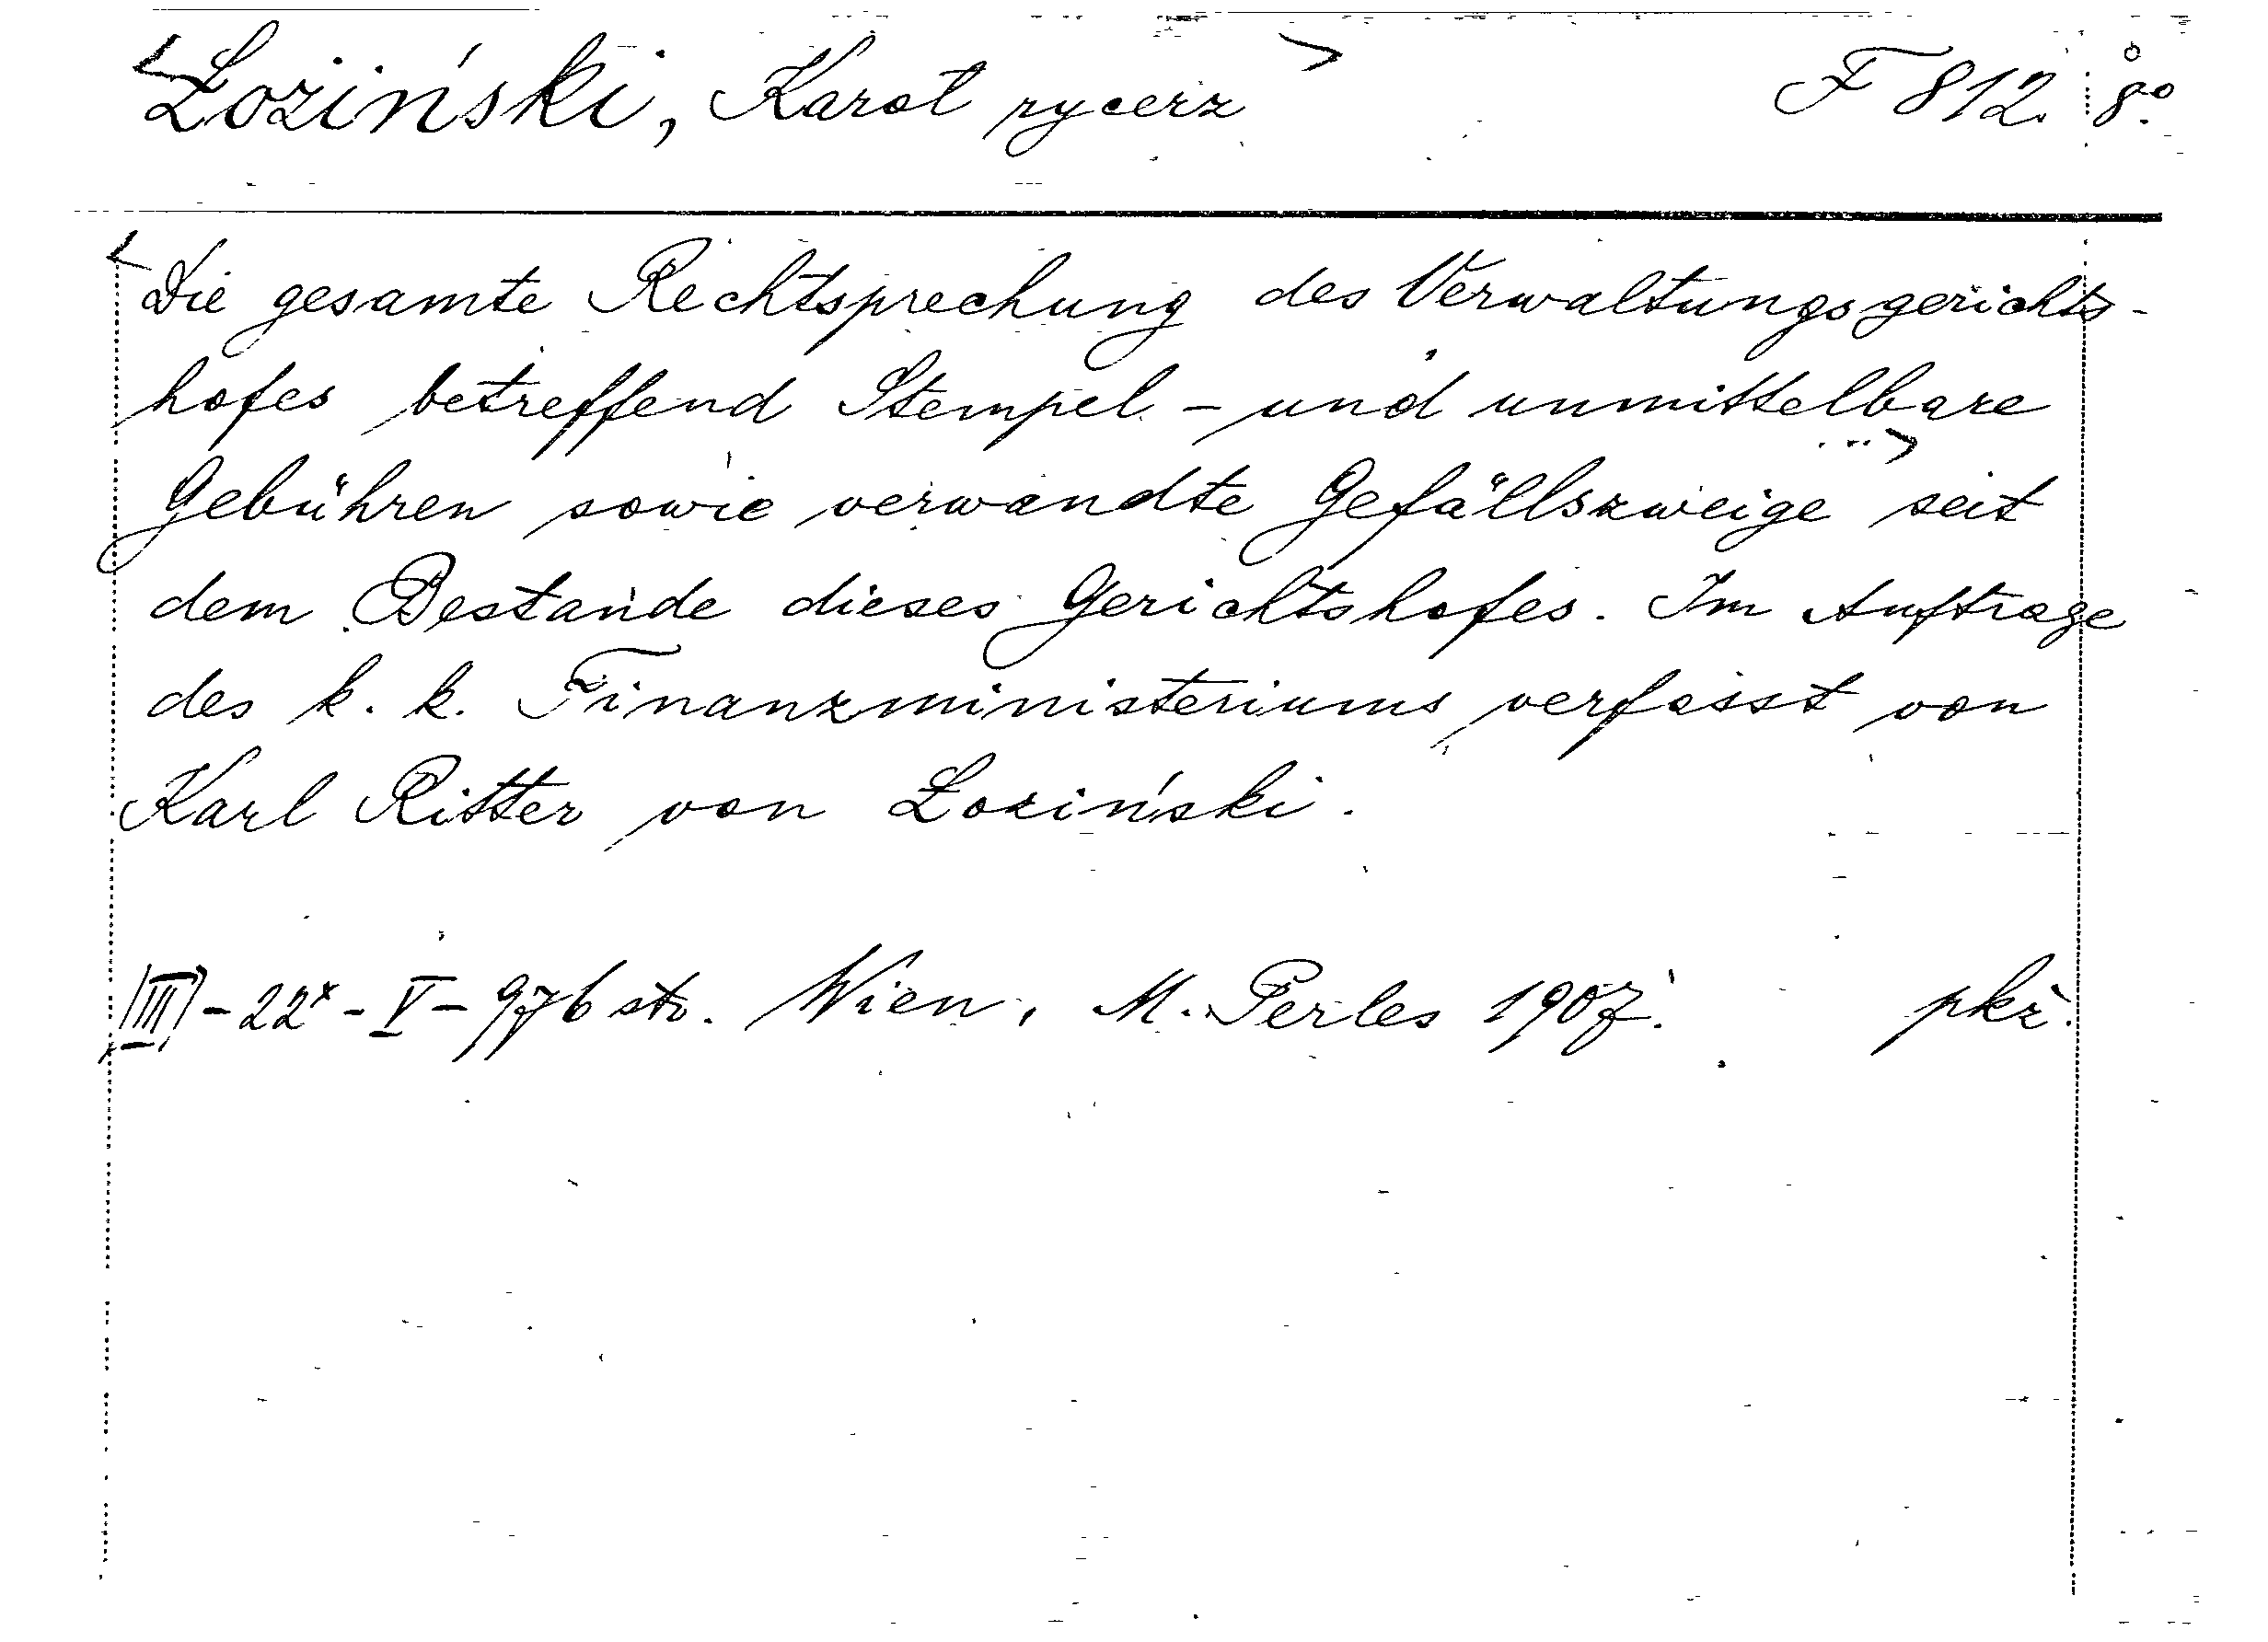 <Łoziński, Karol rycerz> F 812. 8º.
<Die gesamte Rechtsprechung des Verwaltungsgerichts-
hofes betreffend Stempel - und unmittelbare
Gebühren sowie verwandte Gefällszweige ...> seit
dem Bestande dieses Gerichtshofes. Im Auftrage
des k. k. Finanzministeriums verfasst von
Karl Ritter von Łoziński.
[III] - 22* - V - 976 str. Wien, M. Perles 1907. pkż.